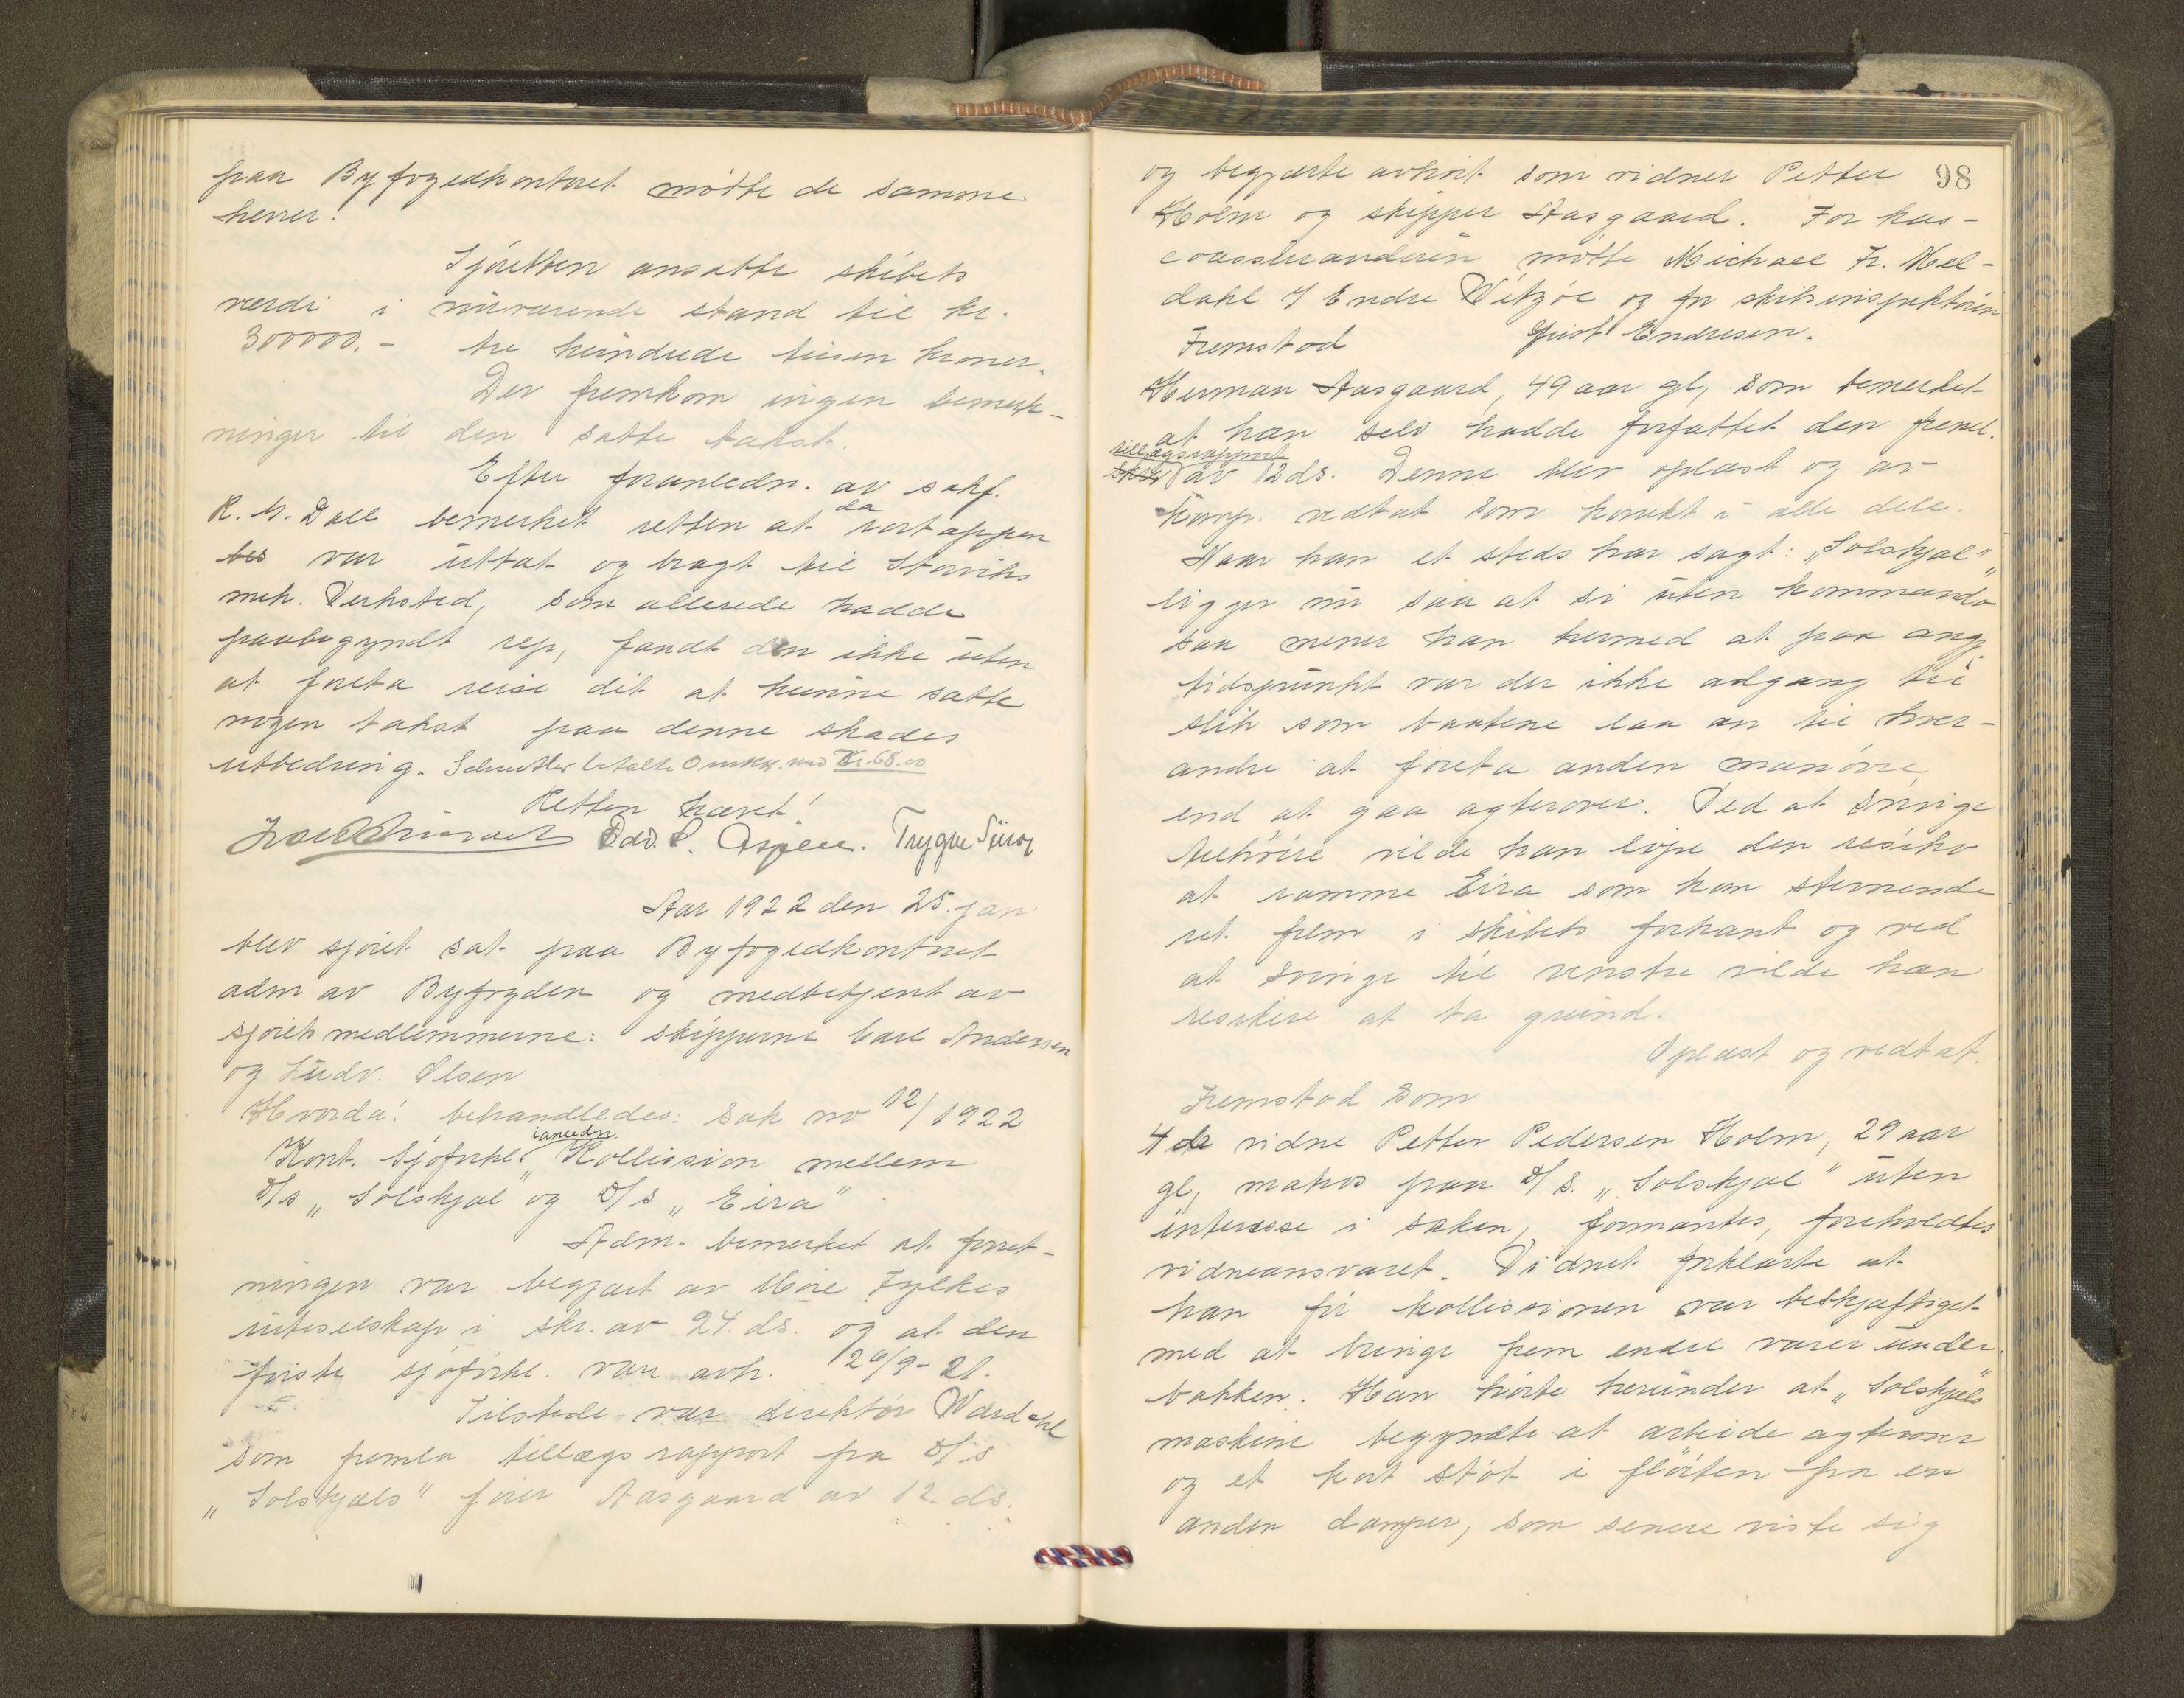 paa Byfogedkontoret møtte de samme
herrer.
Sjøretten ansatte skibets
værdi i nuværende stand til kr.
300000.- tre hundrede tusen kroner.
Der fremkom ingen bemerk-
ninger til den satte takst.
Efter foranledn. av sakf.
R. M. Dall bemerket retten at da
bes var uttat og bragt til Storviks
mek. Verksted, som allerede hadde
paabegyndt rep, fandt den ikke uten
at foreta reise dit at kunne sætte
nogen takst paa denne skades
utbedring. betalte omkn. med Kr. 68.00
Retten hævet!
Edv. P. Aspen. Trygve
Aar 1922 den 25. jan
blev sjøret sat paa Byfogedkontoret
adm av Byfogden og medbetjent av
sjøretsmedlemmerne: skipperne Carl Andersen
og Ludv. Olsen
Hvorda! behandledes: Sak no 12/1922
ianledn.
Kont. Sjøforkl. Kollission mellem
D/s „Solskjæl" og D/s „Eira"
Adm. bemerket at forret-
ningen var begjært av Møre Fylkes
ruteselskap i skr. av 24. ds. og at den
første sjøforkl. var avh. 26/9-21.
Tilstede var direktør Wærdahl
som fremla tillægsrapport fra D/s
„Solskjæls" fører Aasgaard av 12. ds.
98
og begjærte avhørt som vidner Petter
Holm og skipper Aasgaard. For kas-
coassurandøren møtte Michael Fr. Mel-
dahl f Endre Witzøe og for skibsinspektøren
Fremstod Just Endresen.
Herman Aasgaard, 49 aar gl, som bemerket
at han selv hadde forfattet den freml.
tillægsrapport
av 12 ds. Denne blev oplæst og av
komp. vedtat som korrekt i alle dele.
Naar han et steds har sagt: „Solskjæl"
ligger nu saa at si uten kommando
saa mener han hermed at paa ang.
tidspunkt var der ikke adgang til
slik som baatene laa an til hver-
andre at foreta anden manøvre
end at gaa agterover. Ved at svinge
tilhøire vilde han løpe den risiko
at ramme Eira som kom stevnende
ret frem i skibets forkant og ved
at svinge til venstre vilde han
risikere at ta grund.
Oplæst og vedtat.
Fremstod som
4de vidne Petter Pedersen Holm, 29 aar
gl, matros paa D/S. „Solskjæl" uten
interesse i saken, formantes, foreholdtes
vidneansvaret. Vidnet forklarte at
han før kollissionen var beskjæftiget
med at bringe frem endel varer under
bakken. Han hørte herunder at „Solskjæls"
maskine begyndte at arbeide agterover
og et kort støt i fløiten fra en
anden damper, som senere viste sig